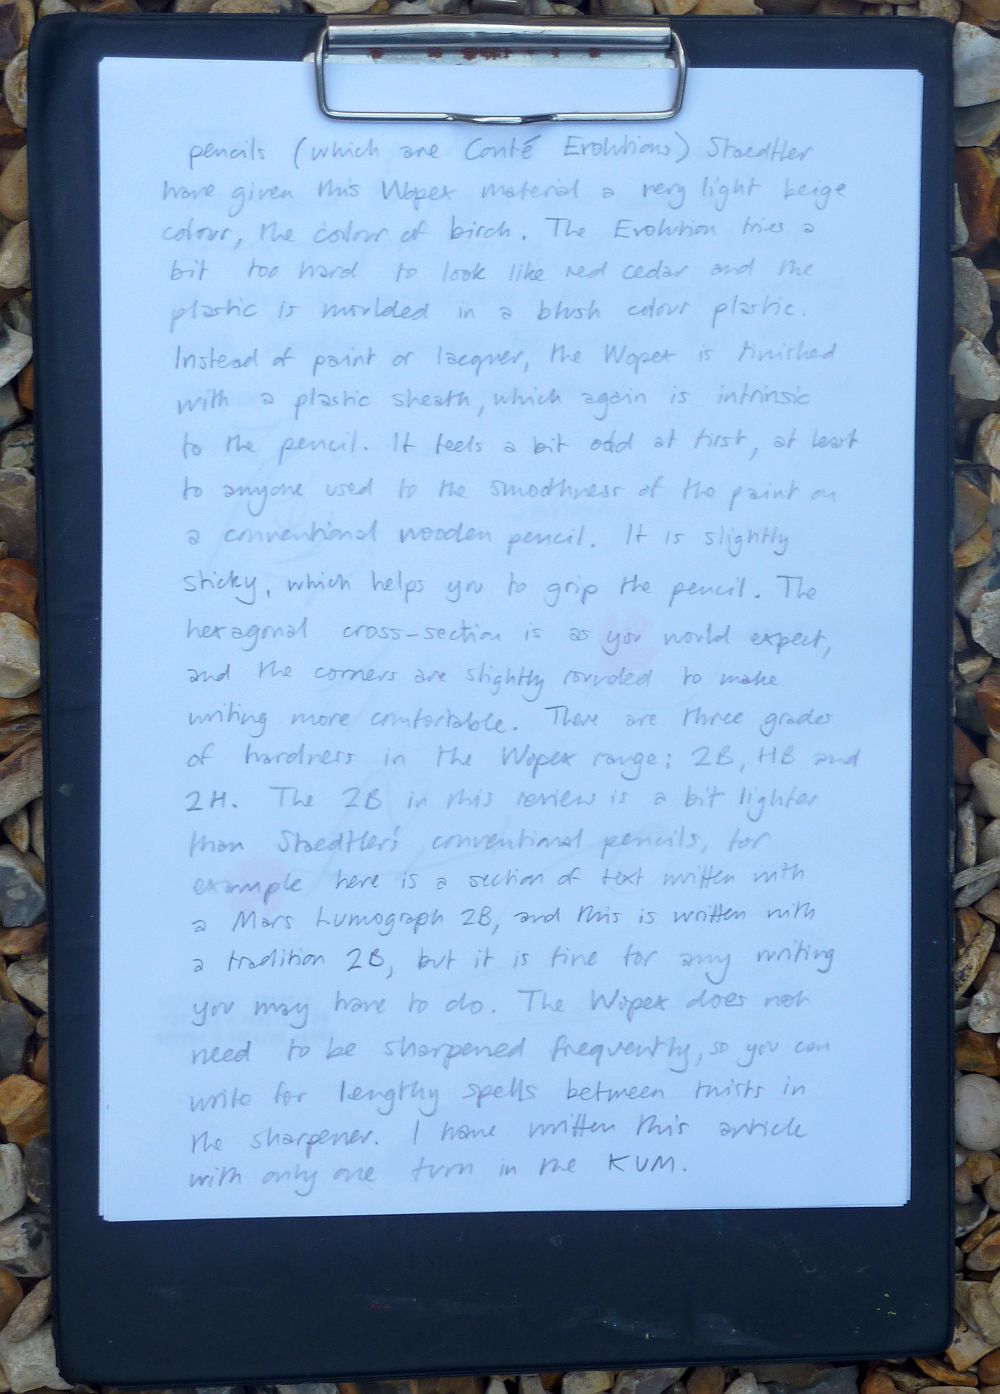 pencils (which are Conté Evolutions) Staedtler
have given this Wopex material a very light beige
colour, the colour of birch. The Evolution tries a
bit too hard to look like red cedar and the
plastic is moulded in a blush colour plastic.
Instead of paint or lacquer, the Wopex is finished
with a plastic sheath, which again is intrinsic
to the pencil. It feels a bit odd at first, at least
to anyone used to the smoothness of the paint on
a conventional wooden pencil. It is slightly
sticky, which helps you to grip the pencil. The
hexagonal cross-section is as you would expect,
and the corners are slightly rounded to make
writing more comfortable. There are three grades
of hardness in the Wopex range; 2B, HB and
2H. The 2B in this review is a bit lighter
than Staedtler's conventional pencils, for
example here is a section of text written with
a Mars Lumograph 2B, and this is written with
a tradition 2B, but it is fine for any writing
you may have to do. The Wopex does not
need to be sharpened frequently, so you can
write for lengthy spells between twists in
the sharpener. I have written this article
with only one turn in the KUM.